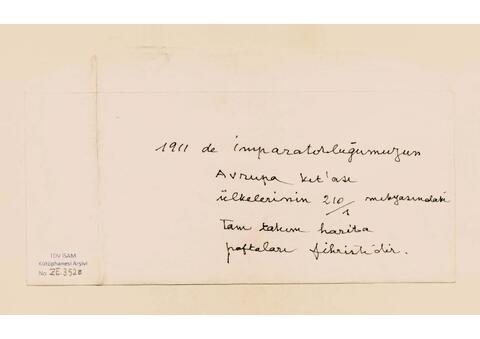 1911 de İmparatorluğumuzun
Avrupa kıt'ası
ülkelerinin 210/1 mikyasındaki
Tam takım harita
paftaları fihristidir.
TDV İSAM
Kütüphanesi Arşivi
No ZE.3528